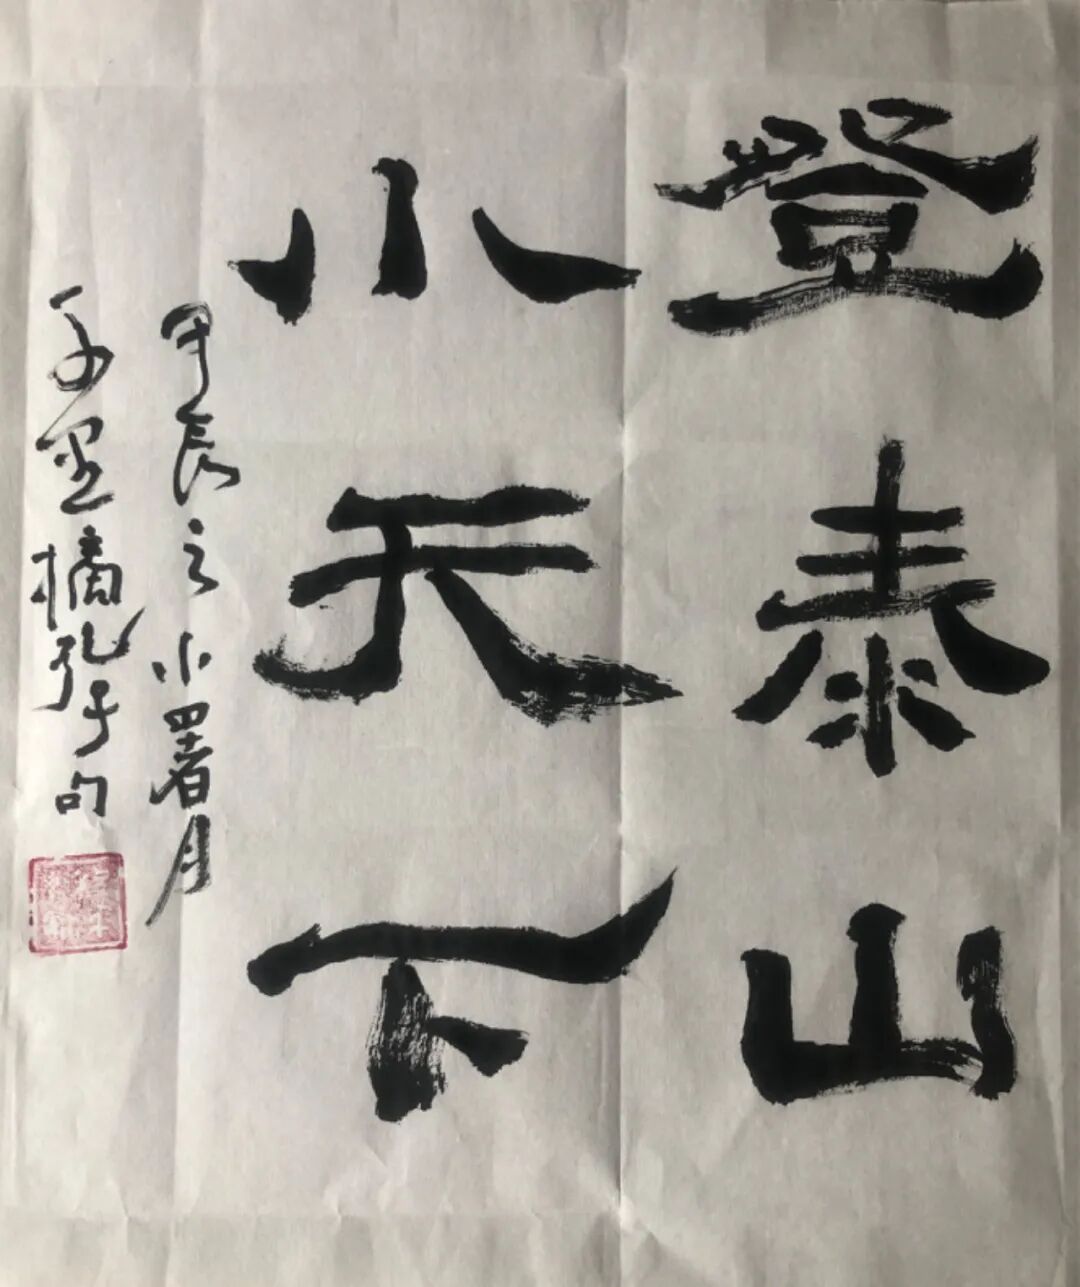 登泰山
小天下
甲辰之小署月
子墨摘孔子句